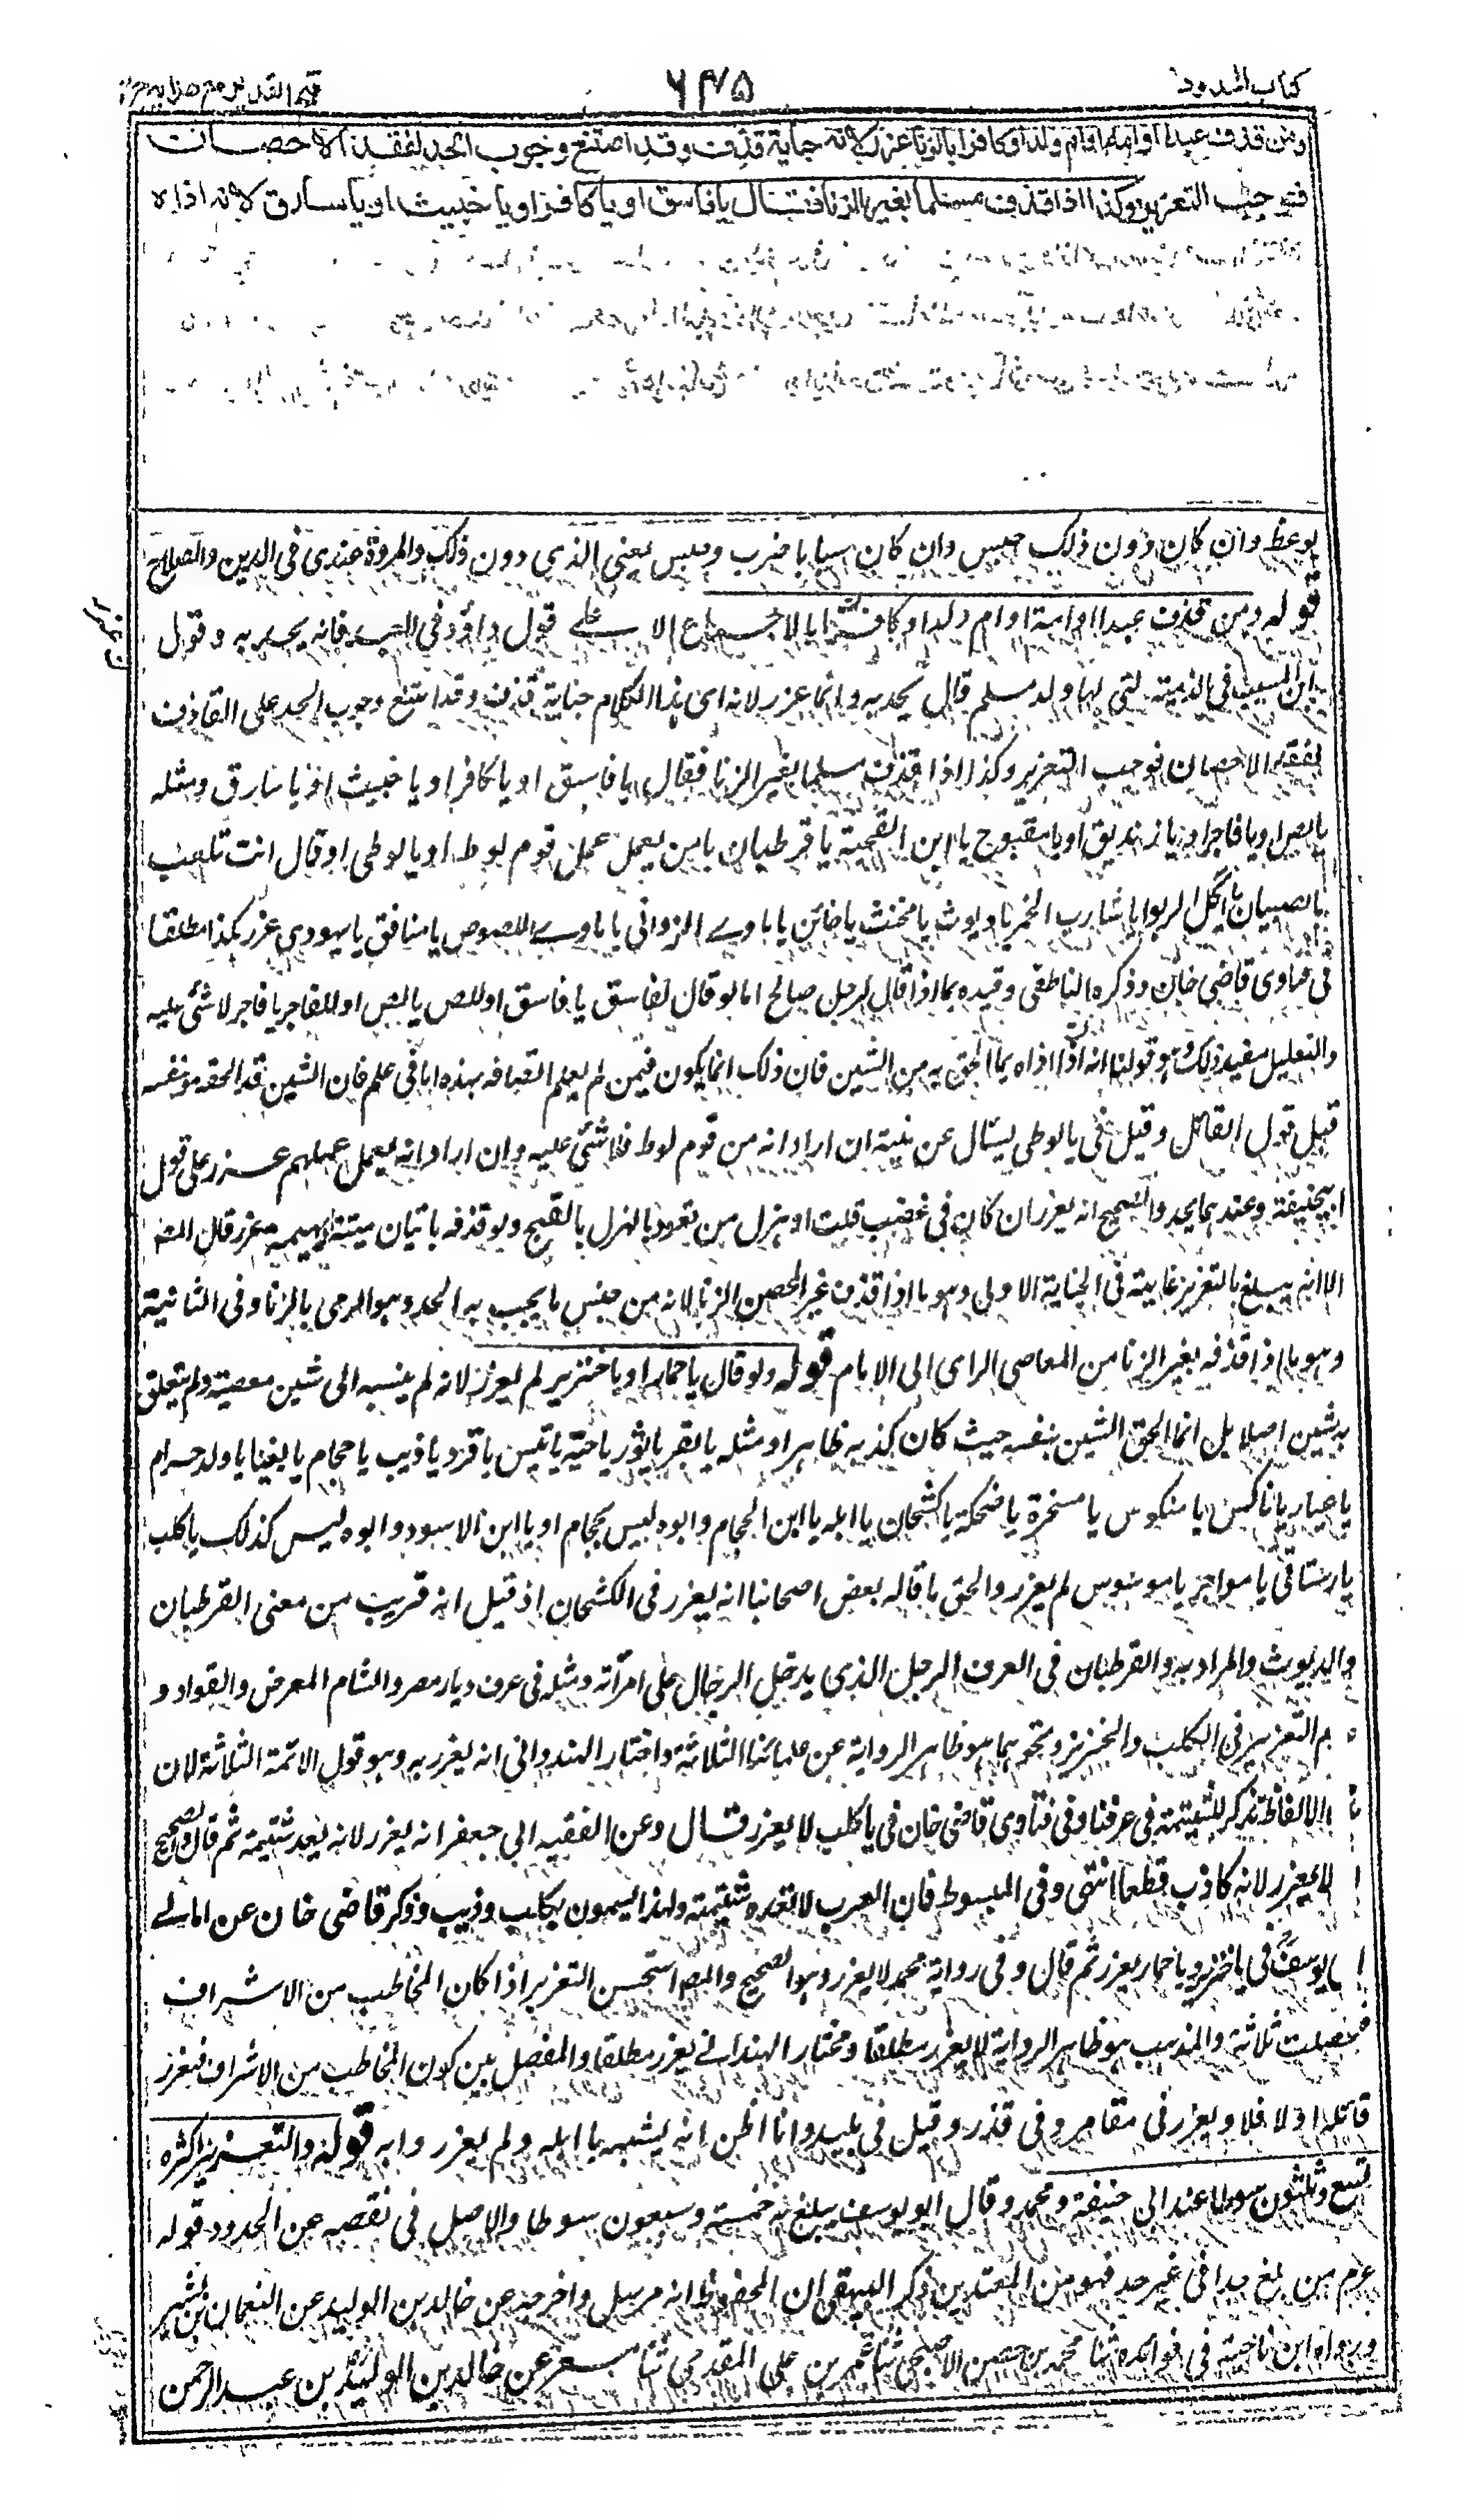 كتاب الحدود
٦٤٥
فتح القدير مع هدايه
ومن قذف عبدا او امة او ام ولد او كافرا بالزنا عزر لانه جناية قذف وقد امتنع وجوب الحد لفقد الاحصان
فوجب التعزير وكذا اذا قذف مسلما بغير الزنا فقال يا فاسق او يا كافر او يا خبيث او يا سارق لانه اذاه
يوعظ وان كان دون ذلك حبس وان كان سبابا ضرب وحبس يعني الذي دون ذلك والمروة عندي في الدين والصلاح
قوله ومن قذف عبدا او امة او ام ولد او كافرا بالاجماع الا على قول داؤد في العبد فانه يحد به وقول
ابن المسيب في الذمية التي لها ولد مسلم قال يحد به وانما عزر لانه اى هذا الكلام جناية قذف وقد امتنع وجوب الحد على القاذف
لفقد الاحصان فوجب التعزير وكذا اذا قذف مسلما بغير الزنا فقال يا فاسق او يا كافر او يا خبيث او يا سارق ومثله
يا لص او يا فاجر او يا زنديق او يا مقبوح يا ابن القحبة يا قرطبان يا من يعمل عمل قوم لوط او يا لوطي او قال انت تلعب
بالصبيان يا آكل الربوا يا شارب الخمر يا ديوث يا مخنث يا خائن يا ماوى الزوانى يا ماوى اللصوص يا منافق يا يهودى عزر هكذا مطلقا
فى فتاوى قاضى خان وذكره الناطفى وقيده بما اذا قال لرجل صالح اما لو قال لفاسق يا فاسق او للص يا لص او للفاجر يا فاجر لا شئ عليه
والتعليل يفيد ذلك وهو قولنا انه اذاه بما الحق به من الشين فان ذلك انما يكون فيمن لم يعلم اتصافه بهذه اما فى علم فان الشين قد الحقه هو نفسه
قبل قول القائل وقيل فى يا لوطى يسئال عن نيته ان اراد انه من قوم لوط فلا شئ عليه وان اراد انه يعمل عملهم عزر على قول
ابيحنيفة وعندهما يحد والصحيح انه يعزر ان كان فى غضب قلت او هزل من تعود بالهزل بالقبيح ولو قذفه باتيان ميتة او بهيمة عزر قال المص
الا انه يبلغ بالتعزير غايته فى الجناية الاولى وهو ما اذا قذف غير المحصن بالزنا لانه من جنس ما يجب به الحد وهو الرمى بالزنا وفى الثانية
وهو ما اذا قذفه بغير الزنا من المعاصى الراى الى الامام قوله ولو قال يا حمار او يا خنزير لم يعزر لانه لم ينسبه الى شين معصية ولم يتعلق
به شين اصلا بل انما الحق الشين بنفسه حيث كان كذبه ظاهرا ومثله يا بقر يا ثور يا حية يا تيس يا قرد يا ذيب يا حجام يا بغا يا ولد حرام
يا عيار يا ناكس يا منكوس يا مسخرة يا ضحكة يا كشحان يا ابله يا ابن الحجام وابوه ليس بحجام او يا ابن الاسود وابوه ليس كذلك يا كلب
يا رستاقى يا مواجر يا موسوس لم يعزر والحق ما قاله بعض اصحابنا انه يعزر فى الكشحان اذ قيل انه قريب من معنى القرطبان
والديوث والمراد به والقرطبان فى العرف الرجل الذى يدخل الرجال على امرأته ومثله فى عرف ديار مصر والشام المعرض والقواد و
م التعزير فى الكلب والخنزير ونحوهما هو ظاهر الرواية عن علمائنا الثلاثة واختار الهندوانى انه يعزر به وهو قول الائمة الثلاثة لان
الالفاظ تذكر للشتيمة فى عرفنا وفى فتاوى قاضى خان فى يا كلب لا يعزر قال وعن الفقيه ابى جعفر انه يعزر لانه يعد شتيمة ثم قال والصحيح
لا يعزر لانه كاذب قطعا انتهى وفى المبسوط فان العرب لا تعده شتيمة ولهذا يسمون بكلب وذيب وذكر قاضى خان عن امالى
ابى يوسف فى يا خنزير ويا حمار يعزر ثم قال وفى رواية محمد لا يعزر وهو الصحيح والمص استحسن التعزير اذا كان المخاطب من الاشراف
فتحصلت ثلاثة والمذهب هو ظاهر الرواية لا يعزر مطلقا ومختار الهندوانى يعزر مطلقا والمفصل بين كون المخاطب من الاشراف فيعزر
قائله او لا فلا ويعزر فى مقامر وفى قذر وقيل فى بليد وانا اظن انه يشبهه يا ابله ولم يعزر وا به قوله والتعزير اكثره
تسع وثلثون سوطا عند ابى حنيفة ومحمد وقال ابو يوسف يبلغ به خمسة وسبعون سوطا والاصل فى نقصه عن الحدود قوله
عم من بلغ حدا فى غير حد فهو من المعتدين ذكر البيهقى ان المحفوظ انه مرسل واخرجه عن خالد بن الوليد عن النعمان بن بشير
ورواه ابن ناجية فى فوائده ثنا محمد بن حصين الاصبحى ثنا عمر بن على المقدمى ثنا مسعر عن خالد بن الوليد بن عبد الرحمن